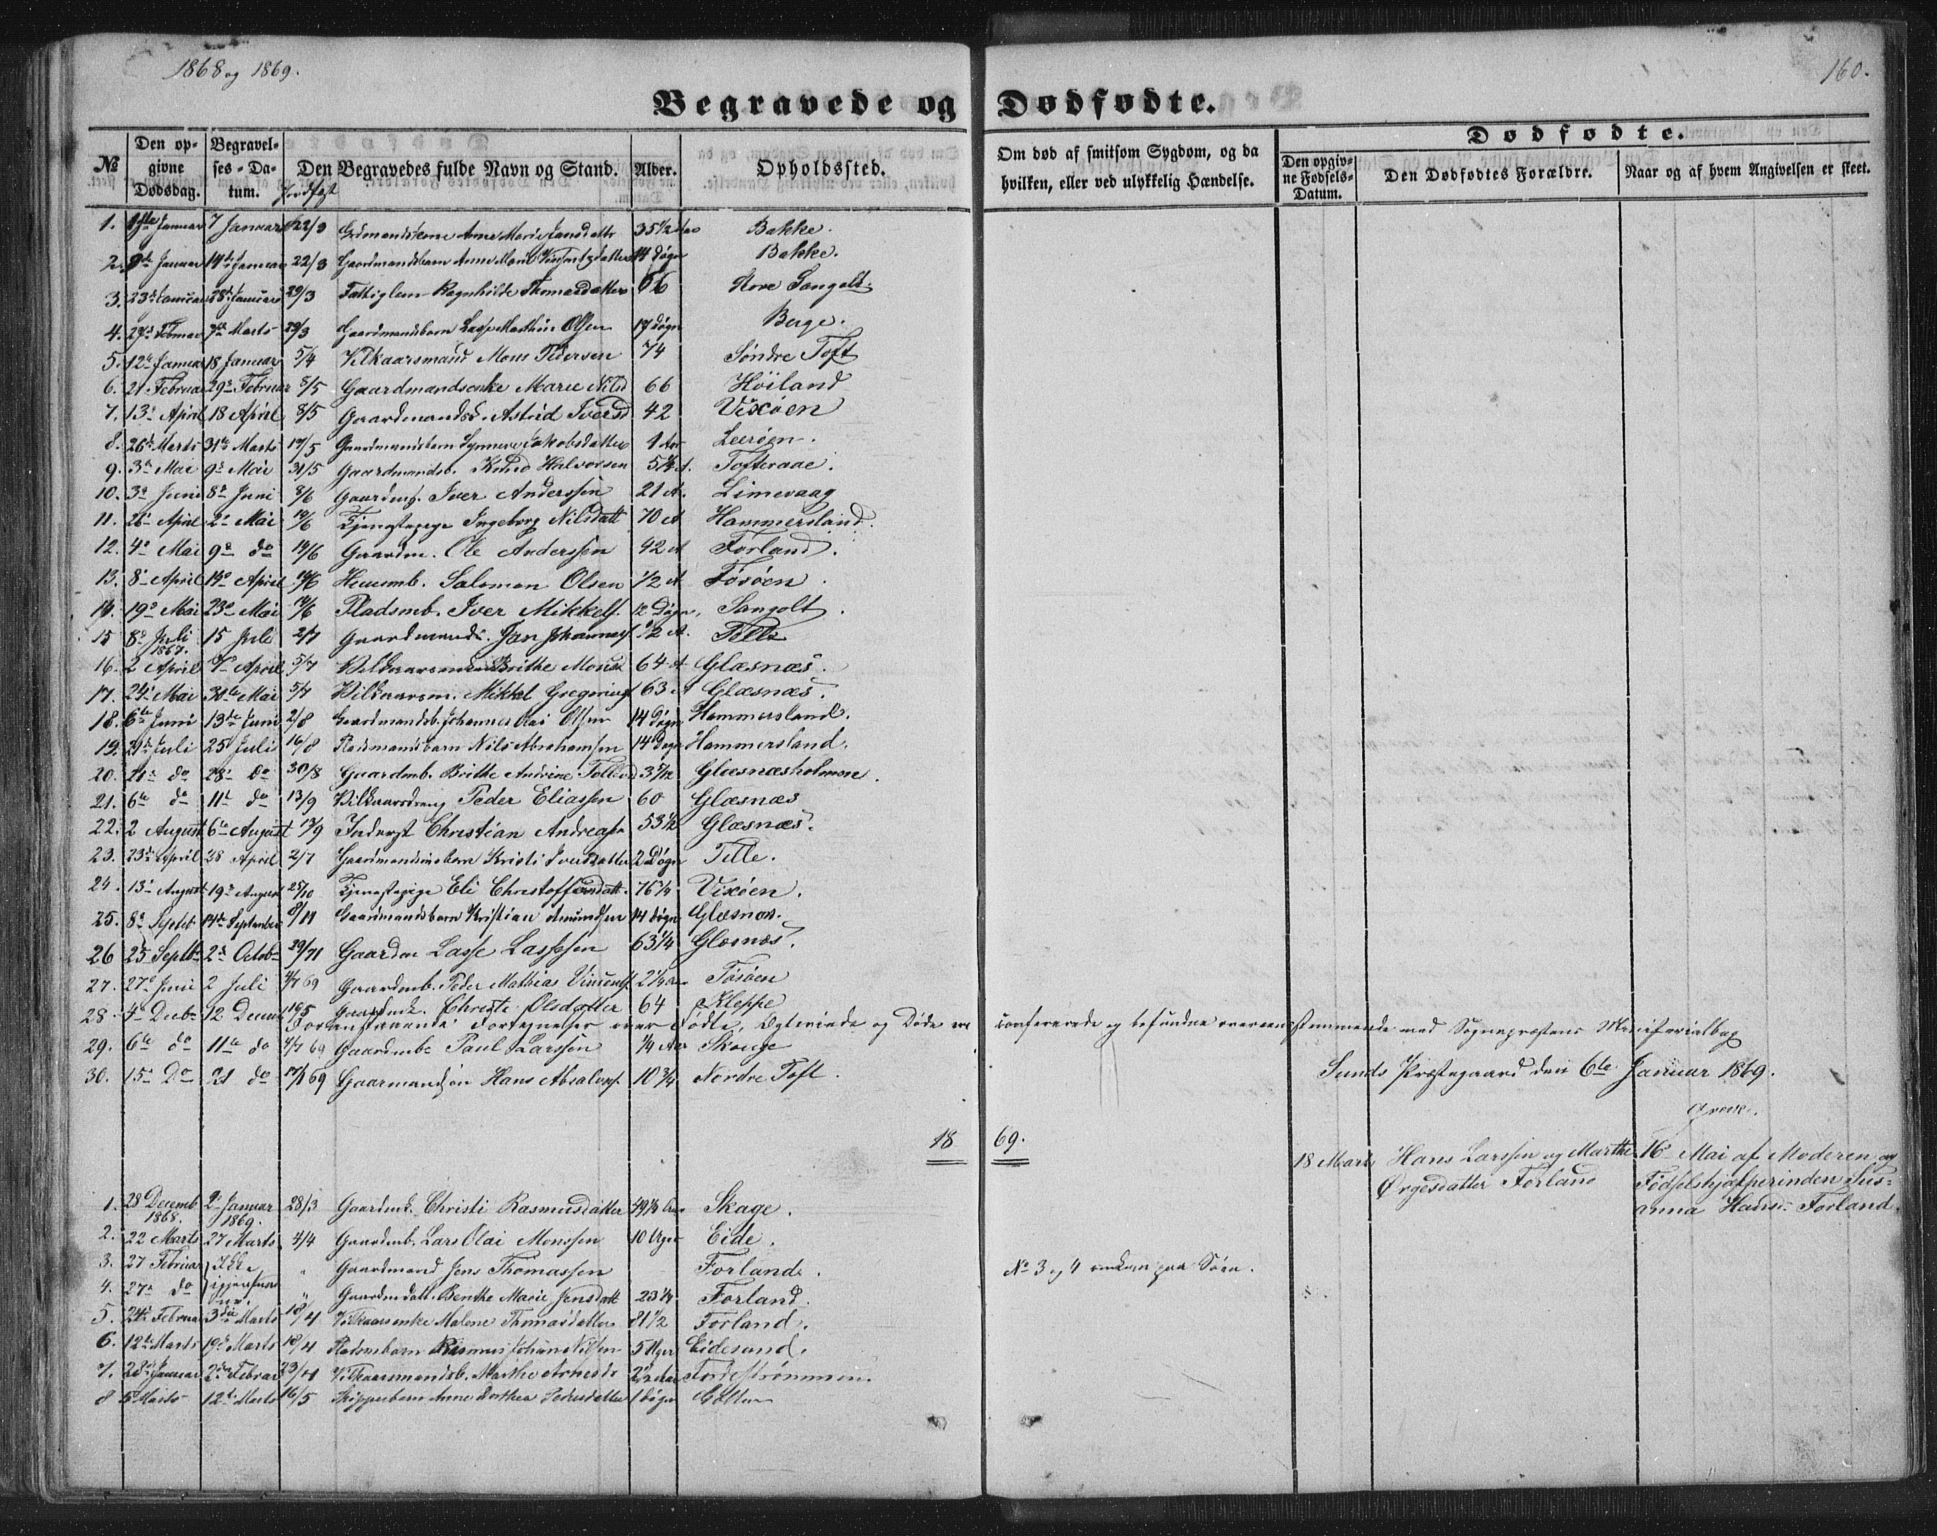 1868 og 1869.
160.
Begravede og Dødfødte.
Dødfødte.
№ Den opgivne Dødsdag. Begravelses-Datum. Den Begravedes fulde Navn og Stand. Alder. Opholdssted. Om død af smitsom Sygdom, og da hvilken, eller ved ulykkelig Hændelse. Den opgivne Fødsels-Datum. Den Dødfødtes Forældre. Naar og af hvem Angivelsen er skeet.
Jordfæst
1. Januar 7 Januar 22/3 Anne Marie 35 1/2 Bakke.
2. Januar 14de Januar 22/3 Gaardmandsbarn Anne 14 Døgn Bakke.
3. 23de Januar 28de Januar 29/3 Fattiglem Ragnhilde Thomasdatter 66 Store Sangolt.
4. 27de Februar 7de Marts 29/3 Gaardmandsbarn Lasse Mathias Olsen 17 Døgn Berge.
5. 12te Januar 18 Januar 5/4 Vilkaarsmand Mons Pedersen 74 Søndre Toft
6. 21 Februar 29de Februar 3/5 Gaardmandsenke Marie Nilsd 66 Høiland
7. 13de April 18 April 3/5 Gaardmandsd. Astrid Iversd 42 Vixøen
8. 26de Marts 31te Marts 17/5 Gaardmandsbarn Synneve Jakobsdatter 1 Aar Leerøen.
9. 3de Mai 9de Mai 31/5 Gaardmandsb. Knud Halvorsen A. Tofteraae.
10. 3de Juni 8de Juni /6 Gaardmd. Iver Anderssen 21 A. Limevaag
11. 26de April 2de Mai /6 Tjenestepige Ingeborg Nilsdatt 70 A Hammersland.
12. 4de Mai 9de do 14/6 Gaardm. Ole Anderssen 42 A Forland.
13. 8de April April /6 Huusmb. Salomon Olsen 1/2 A Tøsøen.
14. 19de Mai 23de Mai 14/6 Pladsmb. Iver Mikkels. 12 Døgn. Sangolt.
15 8de Juli 15 Juli 2/7 Gaardmands. Jan Johannes 1/2 A. Telle
1867.
16. 2 April April 5/7 Brithe Monsd 64 A Glæsnæs.
17. 24de Mai 30te Mai 5/7 Vilkaarsm. Mikkel Gregorius 63 A Glæsnæs.
18. 6te Juni 13de Juni 2/8 Gaardmandsb. Johannes Olai Olsen 14 Døgn Hammersland.
19. Juli 25de Juli 16/8 Pladsmandsbarn Nils Abrahamsen 14 Døgn Hammersland.
20. 21de do 28de do 30/8 Gaardmb. Brithe Andrine Tollevd 3 Glæsnæsholmen.
21. 6te do 11te do 13/9 Peder Eliassen 60 Glæsnæs
22. 2 August 6te August 13/9 Inderst Christian Andreas 53 1/2 Glæsnæs.
23. 23de April 28 April 2/7 Gaardmandsbarn Kristi Iversdatter 2 Døgn Telle.
24. 13de August 19de August 25/10 Tjenestepige Eli Christoffersdatt. 76 1/4 Vixøen.
25. 8de Septeb 14de September 8/11 Gaardmandsbarn Kristian Amundsen 14 Døgn Glæsnæs.
26 25 Septb 2de Octob 29/11 Gaardm Lasse Lassesen 63 1/4 Glæsnæs.
27. 27de Juni 2 Juli 69 Gaardmb. Peder Mathias Vincents Tøsøen
28. 4de Decb 12 Decem 18/5 Gaardmk. Christi Olsdatter 64 Kleppe
Foranstaaende Fortegnelser over Fødte, Ægteviede og Døde ere confererede og befundne overeensstemmende med Sognepræstens Ministerialbog
29. 6te do 11te do 69 Gaardmb Paul Larssen 1/4 Aar Skauge
Sunds Præstegaard den 6te Januar 1869.
30. 15de Do 21 do 17/1 69 Gaarmandsøn Hans Absalons. 10 3/4 Nordre Toft.
1869.
18 Mart Hans Larssen og Marthe Ørgesdatter Forland 16de Mai af Moderen og Fødselshjælperinden Susanna Hans- Forland.
1. 28 Decemb 1868. 2de Januar 1869. 28/3 Gaardmk. Christi Rasmusdatter 49 1/2 Aar Skage.
2. 22 Marts 27 Marts 4/4 Gaardmb. Lars Olai Monssen 10 Uger Eide.
3. 27 Februar Ikke " Gaardmand Jens Thomassen Forland.
№ 3 og 4 omkom paa Søen.
4. 27de do igjenfunne " Gaardmdatt. Benthe Marie Jensdatt 23 1/4 Forland.
5. 24de Februar 3die Marts 18/4 Vilkaarsenke Malene Thomasdatter 81 1/2 Forland.
6. 12te Marts 19de Marts 18/4 Pladsmbarn Rasmus Johan Nilsen 5 Uger Eidesund.
7. 28de Januar 2den Februar 23/4 Vilkaarsmandsb. Marthe Arnesd 2 1/2 Aar Tordestrømmen.
8 5te Marts 12te Marts 16/5 Skipperbarn Anne Dorthea Pedersdatter 1 Døgn